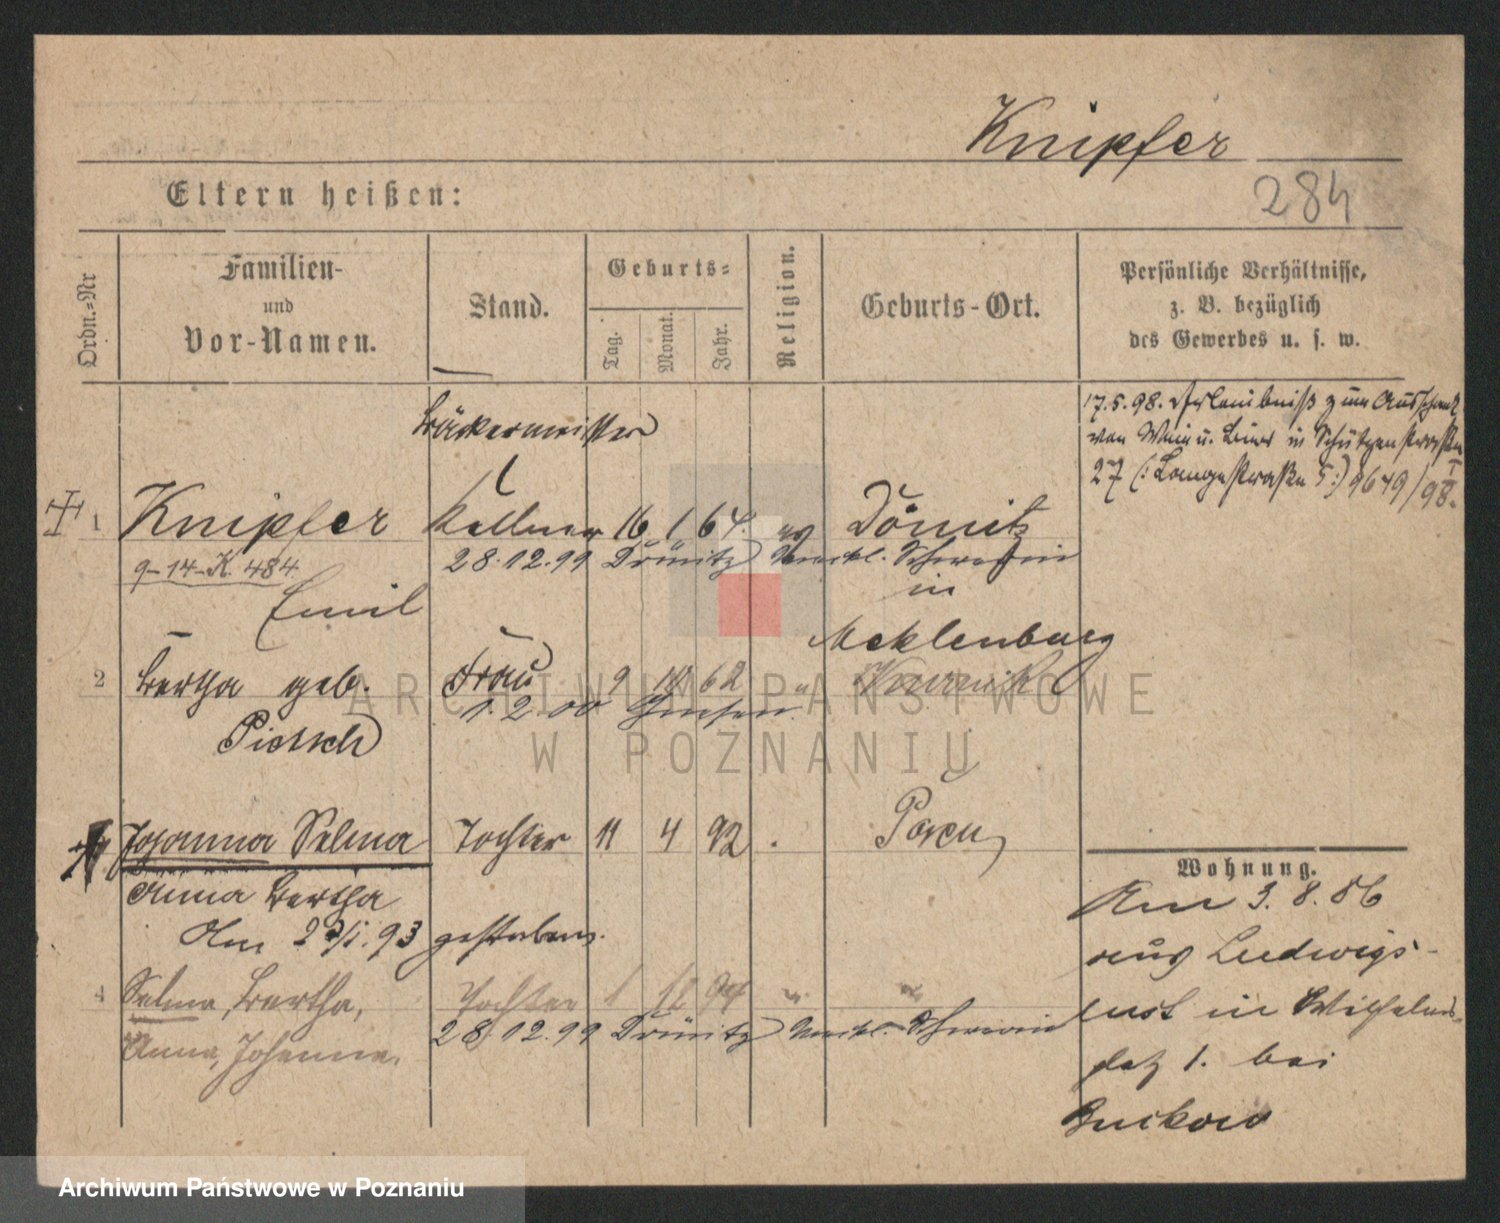 Knipfer
284
Eltern heißen:
Ordn.-Nr
Familien-
und
Vor-Namen.
Stand.
Geburts-
Tag.
Monat.
Jahr.
Religion.
Geburts-Ort.
Persönliche Verhältnisse,
z. B. bezüglich
des Gewerbes u. s. w.
17.5.98. Erlaubniß zum Ausschank
von Wein u. Bier in Schützenstraße
27 (: Langestraße 5 :) 9649/98.
Bäckermeister
1 Knipfer Kellner 16 1 64. ev Dömitz
9-14-K. 484 28.12.99 Dömitz Meckl. Schwerin
Emil in
Mecklenburg
2 Bertha geb. Frau 9 62 " Kurnik
1.2.00 Gnesen
Pietsch
Johanna Selma Tochter 11 4 92 Posen
Anna Bertha
Am /1.93 gestorben.
4 Selma, Bertha, Tochter 1 12 94 " "
28.12.99 Dömitz Meckl. Schwerin
Anna, Johanna.
Wohnung.
Am 3.8.86
aus Ludwigs-
lust in Wilhelms-
platz 1. bei
Buckow
ARCHIWUM PAŃSTWOWE
W POZNANIU
Archiwum Państwowe w Poznaniu